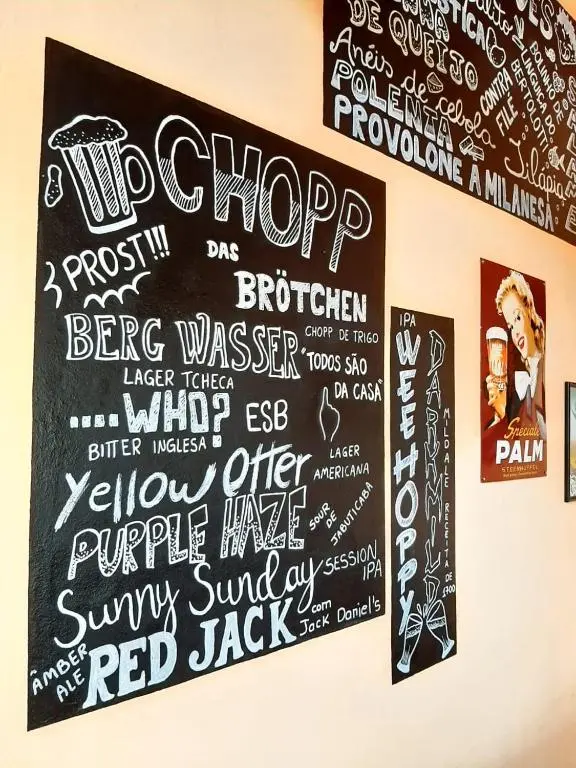 CHOPP
PROST!!!
DAS
BRÖTCHEN
CHOPP DE TRIGO
BERG WASSER
LAGER TCHECA
"TODOS SÃO
DA CASA"
....WHO? ESB
BITTER INGLESA
Yellow Otter
LAGER
AMERICANA
PURPLE HAZE
SOUR DE
JABUTICABA
Sunny Sunday
SESSION
IPA
ÂMBER
ALE
RED JACK
com
Jack Daniel's
IPA
WEE HOPPY
MILD ALE RECEITA DE
1700
DE QUEIJO
Anéis de cebola
CONTRA
FILÉ
BOLINHO DE
LINGUIÇA DO
BERTOLOTTI
POLENTA
Tilápia
PROVOLONE À MILANESA
Speciale
PALM
STEENHUFFEL